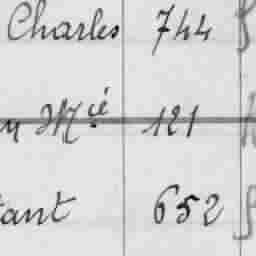 Charles 744
Mcié 121
tant 652